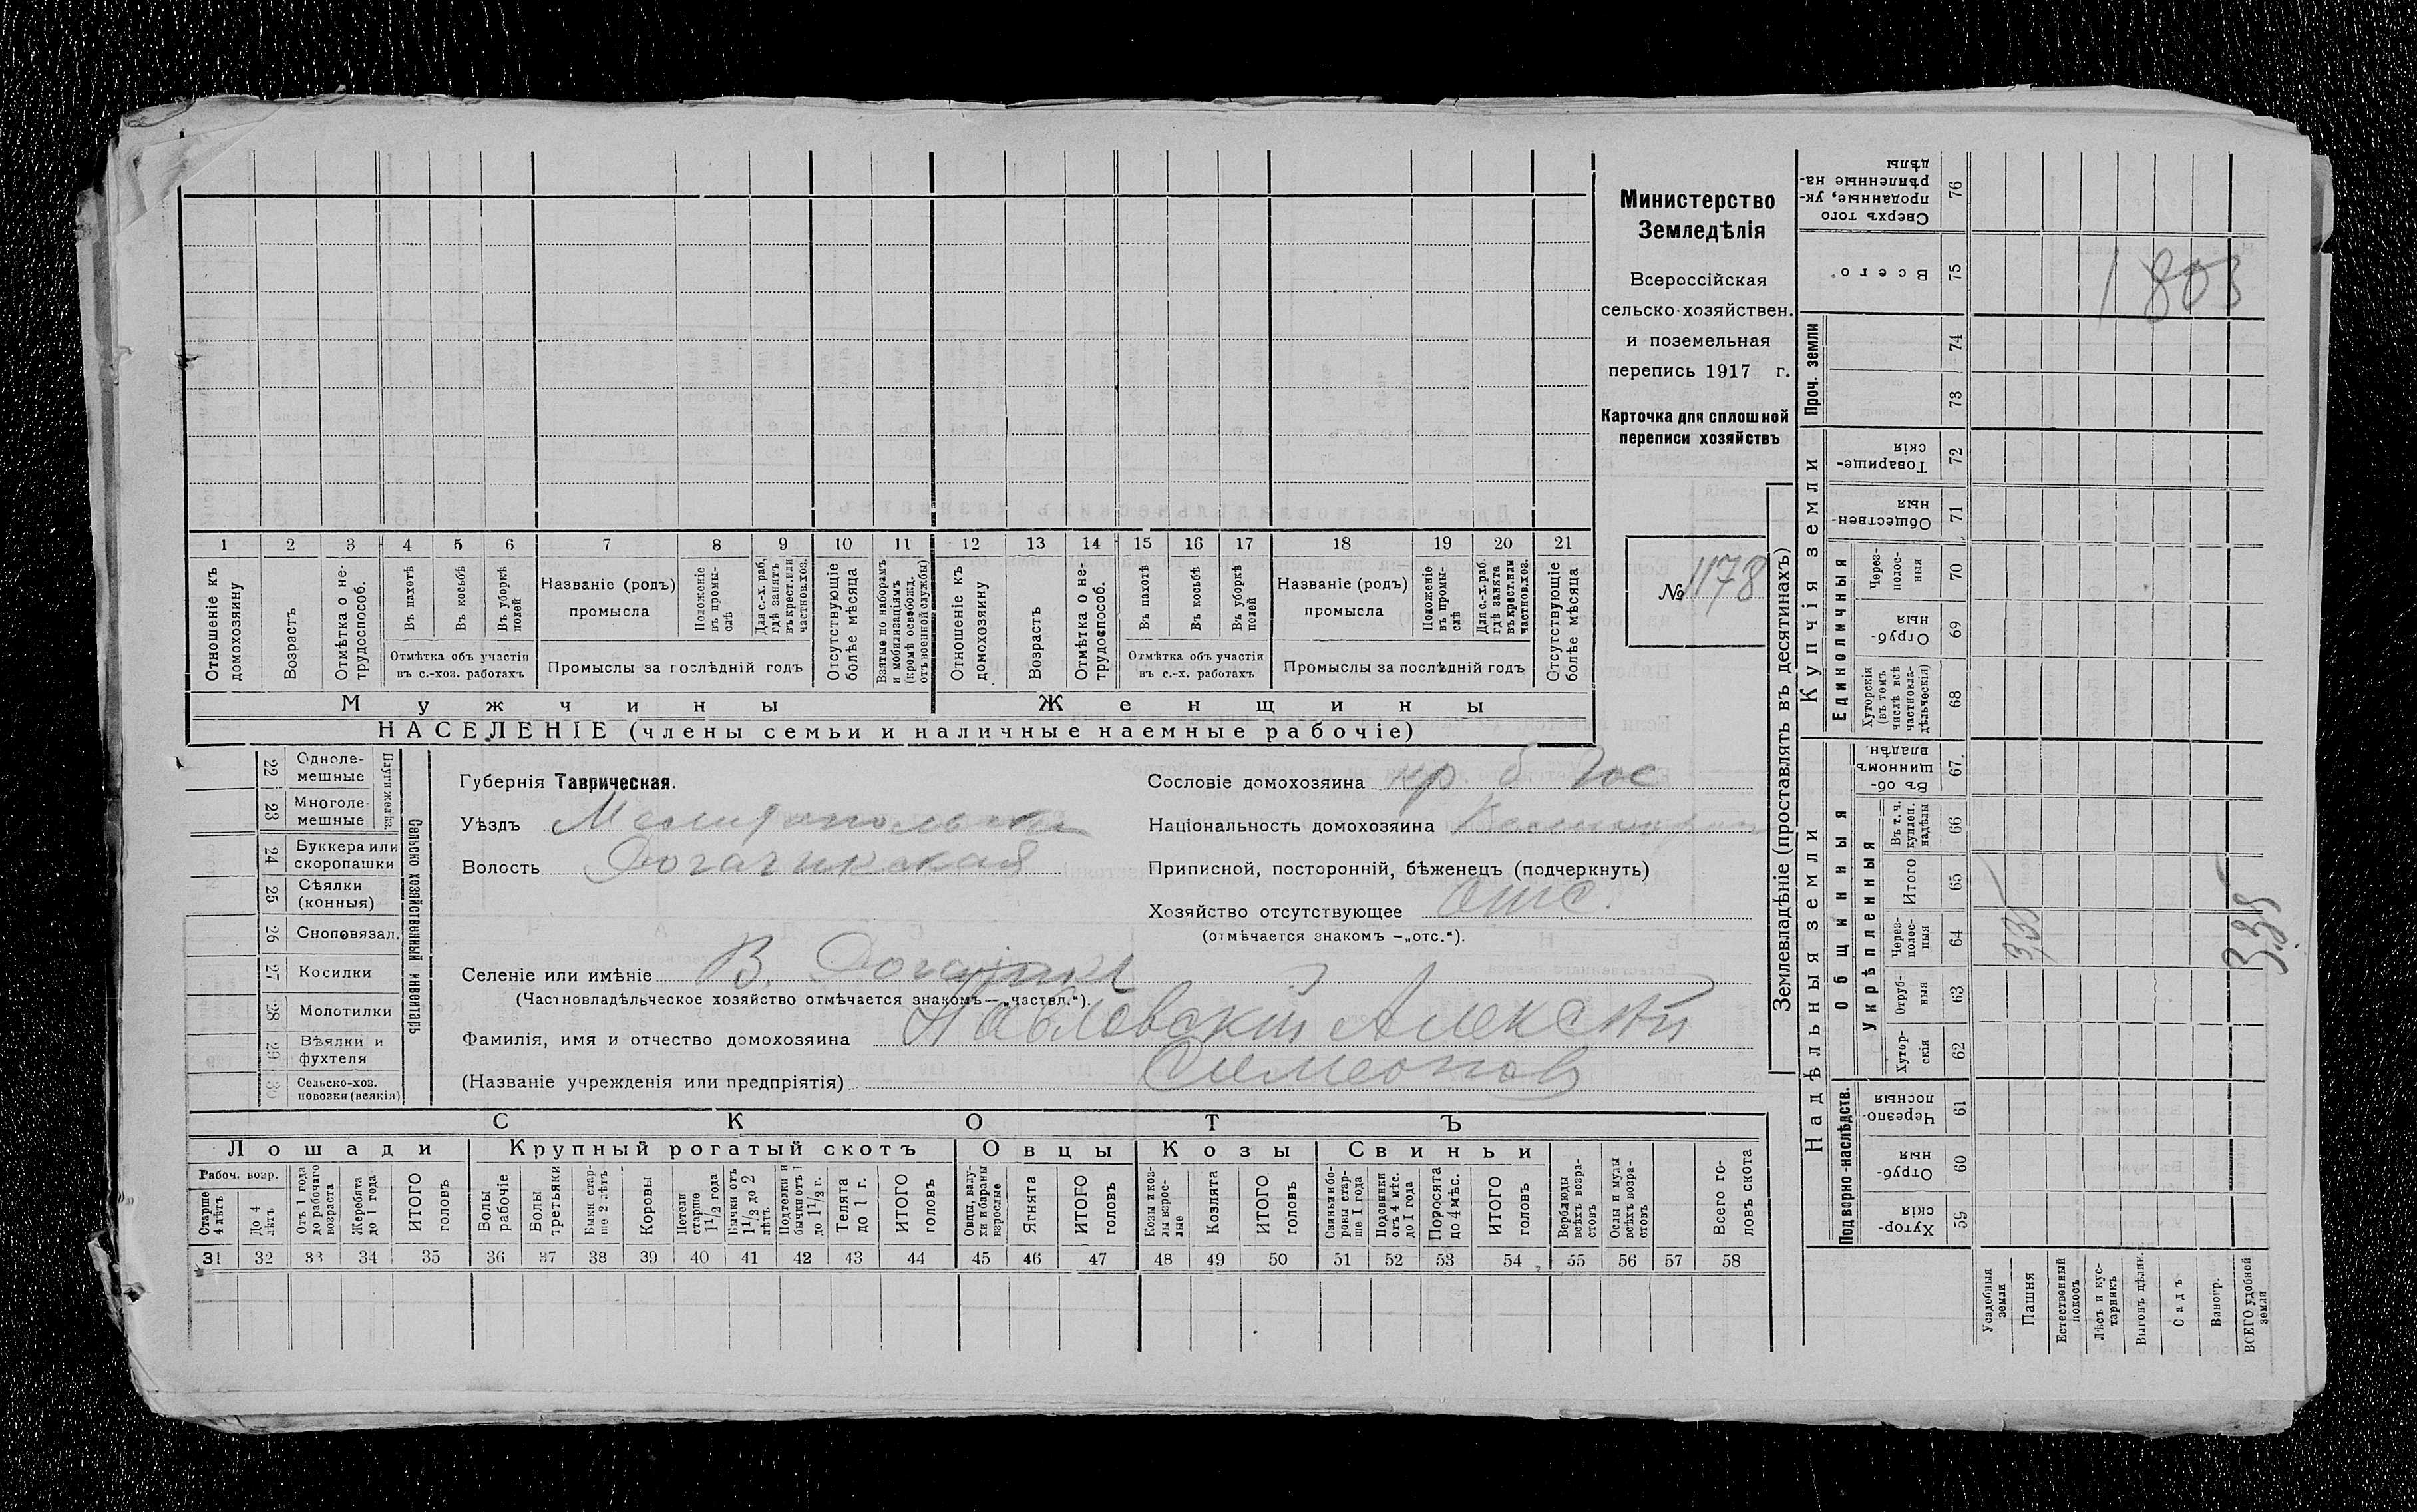 Министерство
Земледѣлія
Всероссійская
сельско-хозяйствен.
и поземельная
перепись 1917 г.
Карточка для сплошной
переписи хозяйствъ
№ 1178
1 2 3 4 5 6 7 8 9 10 11 12 13 14 15 16 17 18 19 20 21
Отношеніе къ домохозяину
Возрастъ
Отмѣтка о не-трудоспособ.
Въ пахотѣ
Въ косьбѣ
Въ уборкѣ полей
Отмѣтка объ участіи
въ с.-хоз. работахъ
Названіе (родъ)
промысла
Положеніе въ промы-слѣ
Для с.-х. раб. гдѣ занятъ въ крест. или частнов. хоз.
Промыслы за послѣдній годъ
Отсутствующіе болѣе мѣсяца
Взятые по наборамъ и мобилизаціямъ (кромѣ освобожд. отъ военной службы)
Отношеніе къ домохозяину
Возрастъ
Отмѣтка о не-трудоспособ.
Въ пахотѣ
Въ косьбѣ
Въ уборкѣ полей
Отмѣтка объ участіи
въ с.-х. работахъ
Названіе (родъ)
промысла
Положеніе въ промы-слѣ
Для с.-х. раб. гдѣ занята въ крест. или частнов. хоз.
Промыслы за послѣдній годъ
Отсутствующіе болѣе мѣсяца
Мужчины Женщины
НАСЕЛЕНІЕ (члены семьи и наличные наемные рабочіе)
Сельско хозяйственный инвентарь
Плуги желѣз.
22 Однолемешные
23 Многолемешные
24 Буккера или скоропашки
25 Сѣялки (конныя)
26 Сноповязал.
27 Косилки
28 Молотилки
29 Вѣялки и фухтеля
30 Сельско-хоз. повозки (всякія)
Губернія Таврическая.
Уѣздъ
Волость Рогачикская
Селеніе или имѣніе В. Рогачикъ
(Частновладѣльческое хозяйство отмѣчается знакомъ—„частвл.“).
Фамилія, имя и отчество домохозяина Павловскій Алексѣй
Симеонов
(Названіе учрежденія или предпріятія)
Сословіе домохозяина кр. б. гос
Національность домохозяина
Приписной, посторонній, бѣженецъ (подчеркнуть)
Хозяйство отсутствующее отс.
(отмѣчается знакомъ —„отс.“).
СКОТЪ
Лошади Крупный рогатый скотъ Овцы Козы Свиньи
Рабоч. возр.
Старше 4 лѣтъ
До 4 лѣтъ
Отъ 1 года до рабочаго возраста
Жеребята до 1 года
ИТОГО головъ
Волы рабочіе
Волы третьяки
Быки стар-ше 2 лѣтъ
Коровы
Нетели старше 1½ года
Бычки отъ 1½ до 2 лѣтъ
Подтелки и бычки отъ 1 до 1½ г.
Телята до 1 г.
ИТОГО головъ
Овцы, валу-хи и бараны взрослые
Ягнята
ИТОГО головъ
Козы и коз-лы взрос-лые
Козлята
ИТОГО головъ
Свиньи и бо-ровы стар-ше 1 года
Подсвинки отъ 4 мѣс. до 1 года
Поросята до 4 мѣс.
ИТОГО головъ
Верблюды всѣхъ возра-стовъ
Ослы и мулы всѣхъ возра-стовъ
Всего го-ловъ скота
31 32 33 34 35 36 37 38 39 40 41 42 43 44 45 46 47 48 49 50 51 52 53 54 55 56 57 58
Землевладѣніе (проставлять въ десятинахъ)
Надѣльныя земли
Купчія земли
Проч. земли
Подворно-наслѣдств.
Общинныя
Укрѣпленныя
Единоличныя
59 Хутор-скія
60 Отруб-ныя
61 Черезпо-лосныя
62 Хутор-скія
63 Отруб-ныя
64 Через-полос-ныя
65 Итого
66 Въ т. ч. куплен. надѣлы
67 Въ об-щинномъ владѣн.
68 Хуторскія (въ томъ числѣ всѣ частновла-дѣльческія)
69 Отруб-ныя
70 Через-полос-ныя
71 Обществен-ныя
72 Товарище-скія
73
74
75 Всего
76 Сверхъ того проданные, ук-рѣпленные на-дѣлы
Усадебная земля
Пашня
Естественный покосъ
Лѣсъ и кус-тарникъ
Выгонъ цѣлин.
Садъ
Виногр.
ВСЕГО удобной земли
1803